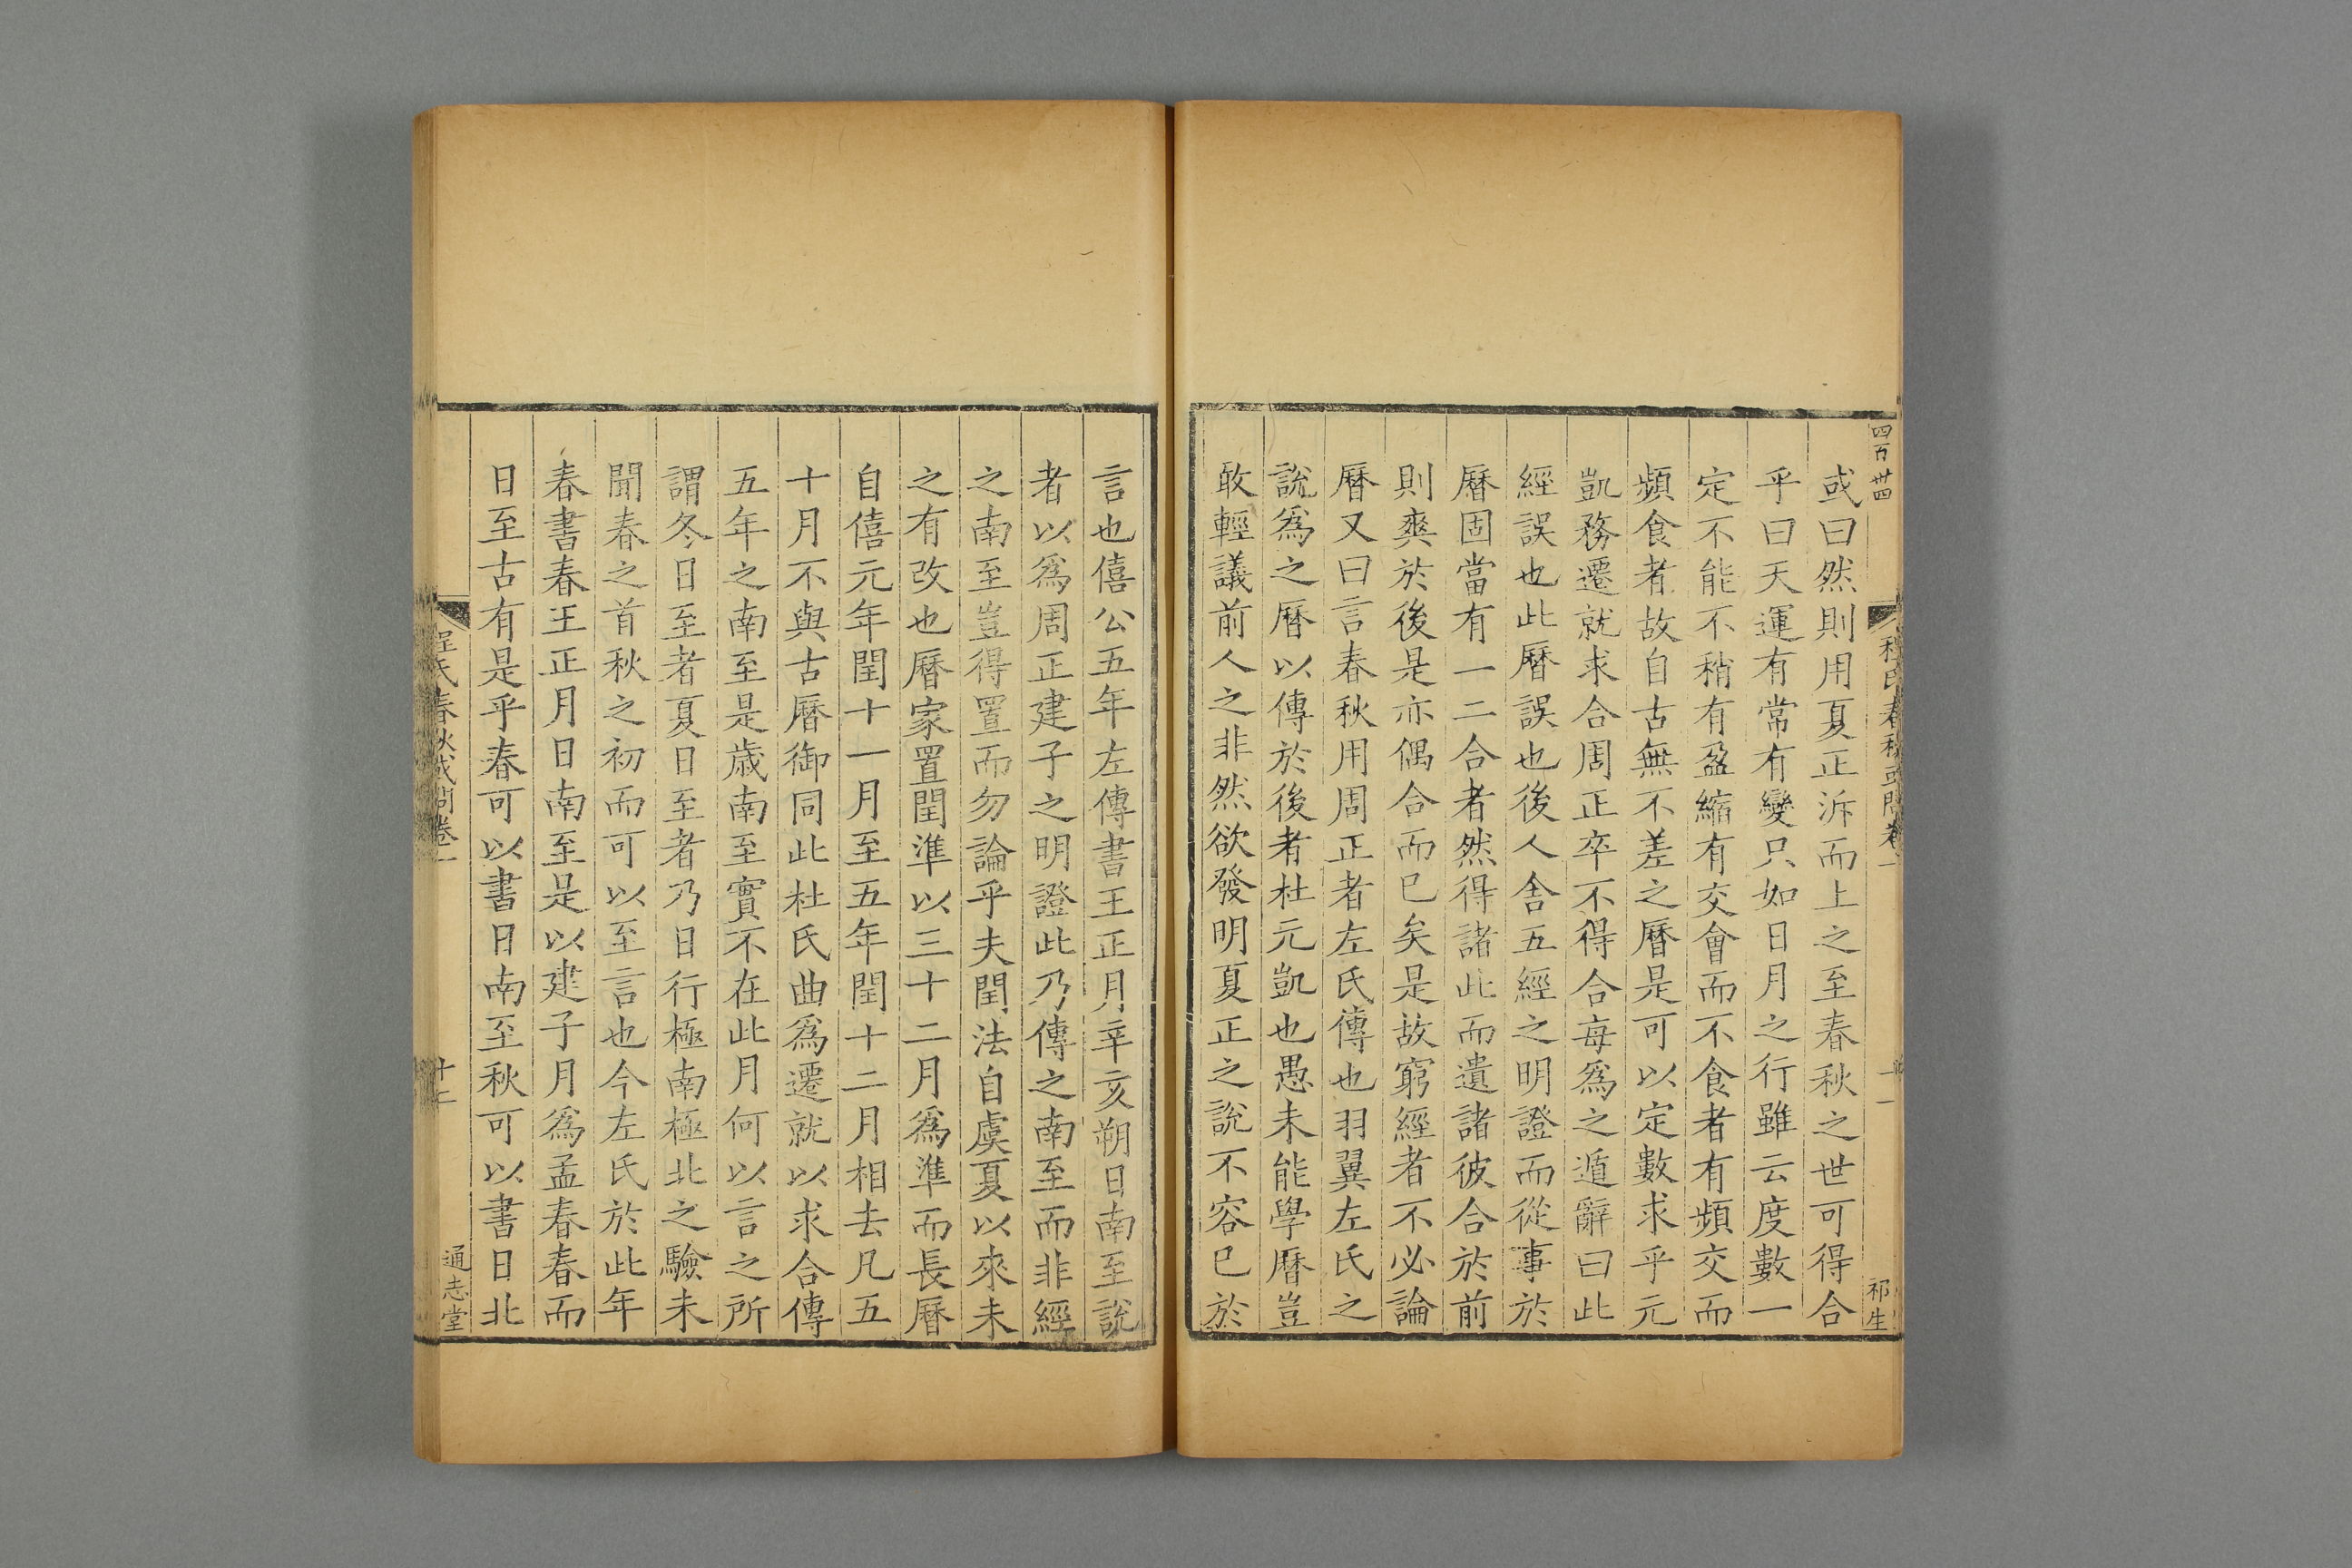 四百卅四
程氏春秋或問卷一
祁生
或曰然則用夏正泝而上之至春秋之世可得合
乎曰天運有常有變只如日月之行雖云度數一
定不能不稍有盈縮有交會而不食者有頻交而
頻食者故自古無不差之曆是可以定數求乎元
凱務遷就求合周正卒不得合每爲之遁辭曰此
經誤也此曆誤也後人舍五經之明證而從事於
曆固當有一二合者然得諸此而遺諸彼合於前
則爽於後是亦偶合而已矣是故窮經者不必論
曆又曰言春秋用周正者左氏傳也羽翼左氏之
說爲之曆以傳於後者杜元凱也愚未能學曆豈
敢輕議前人之非然欲發明夏正之說不容已於
言也僖公五年左傳書王正月辛亥朔日南至說
者以爲周正建子之明證此乃傳之南至而非經
之南至豈得置而勿論乎夫閏法自虞夏以來未
之有改也曆家置閏準以三十二月爲準而長曆
自僖元年閏十一月至五年閏十二月相去凡五
十月不與古曆御同此杜氏曲爲遷就以求合傳
五年之南至是歲南至實不在此月何以言之所
謂冬日至者夏日至者乃日行極南極北之驗未
聞春之首秋之初而可以至言也今左氏於此年
春書春王正月日南至是以建子月爲孟春春而
日至古有是乎春可以書日南至秋可以書日北
程氏春秋或問卷一
十二
通志堂